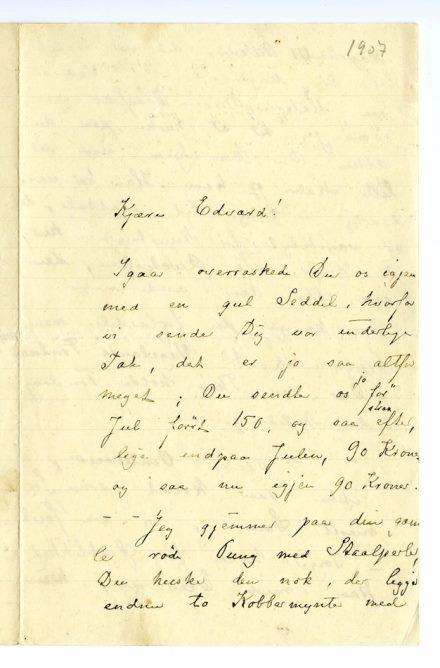 1907
Kjære Edvard!
Igaar overraskede Du os igjen
med en gul Seddel, hvorfor
vi sende Dig vor inderlige
Tak, det er jo saa altfor
meget; Du sendte os jo "før"
Jul først 150, og saa efter,
lige indpaa Julen, 90 Kroner
og saa nu igjen 90 Kroner.
– – Jeg gjemmer paa din gam
le røde Pung med Staalperler,
Du husker den nok, der ligger
endnu to Kobbermynter med